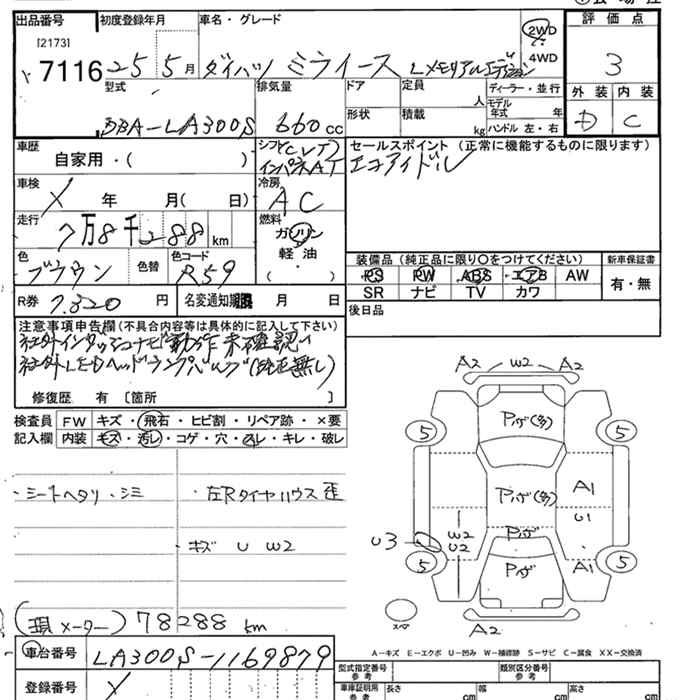 出品番号 初度登録年月 車名・グレード 評価点
[2173]
7116 25 5月 ダイハツ ミライース Lメモリアルエディション 2WD 4WD 3
型式 排気量 ドア 定員 人 ディーラー・並行 外装 内装
DBA-LA300S 660cc 形状 積載 kg モデル年式 年 ハンドル 左・右 D C
車歴 シフト CVT セールスポイント(正常に機能するものに限ります)
自家用・( ) インパネAT エコアイドル
車検 冷房
X 年 月( 日) AC
走行 燃料
7万8千288km ガソリン
軽油
・
( )
色 色替 色コード 装備品(純正品に限り○をつけてください) 新車保証書
ブラウン R59 PS PW ABS エアB AW 有・無
SR ナビ TV カワ
R券 7.320円 名変通知期限 月 日 後日品
注意事項申告欄(不具合内容等は具体的に記入して下さい)
社外インダッシュナビ動作未確認
社外LEDヘッドランプバルブ(純正無し)
修復歴 有〔箇所 〕
検査員 FW キズ・飛石・ヒビ割・リペア跡・×要
記入欄 内装 キズ・汚レ・コゲ・穴・スレ・キレ・破レ
A2 W2 A2
Pカゲ(多)
5 5
・シートヘタリ・シミ ・左Rタイヤハウス歪
Pカゲ(多) A1
U1
・キズ U W2
U3 W2 U2 Pカゲ
5 Pカゲ A1 5
(現メーター) 78288km
スペア
A2
A-キズ E-エクボ U-凹み W-補修跡 S-サビ C-腐食 XX-交換済
車台番号 LA300S-1169879
型式指定番号 参考 類別区分番号 参考
登録番号 X
車庫証明用 参考 長さ cm 幅 cm 高さ cm